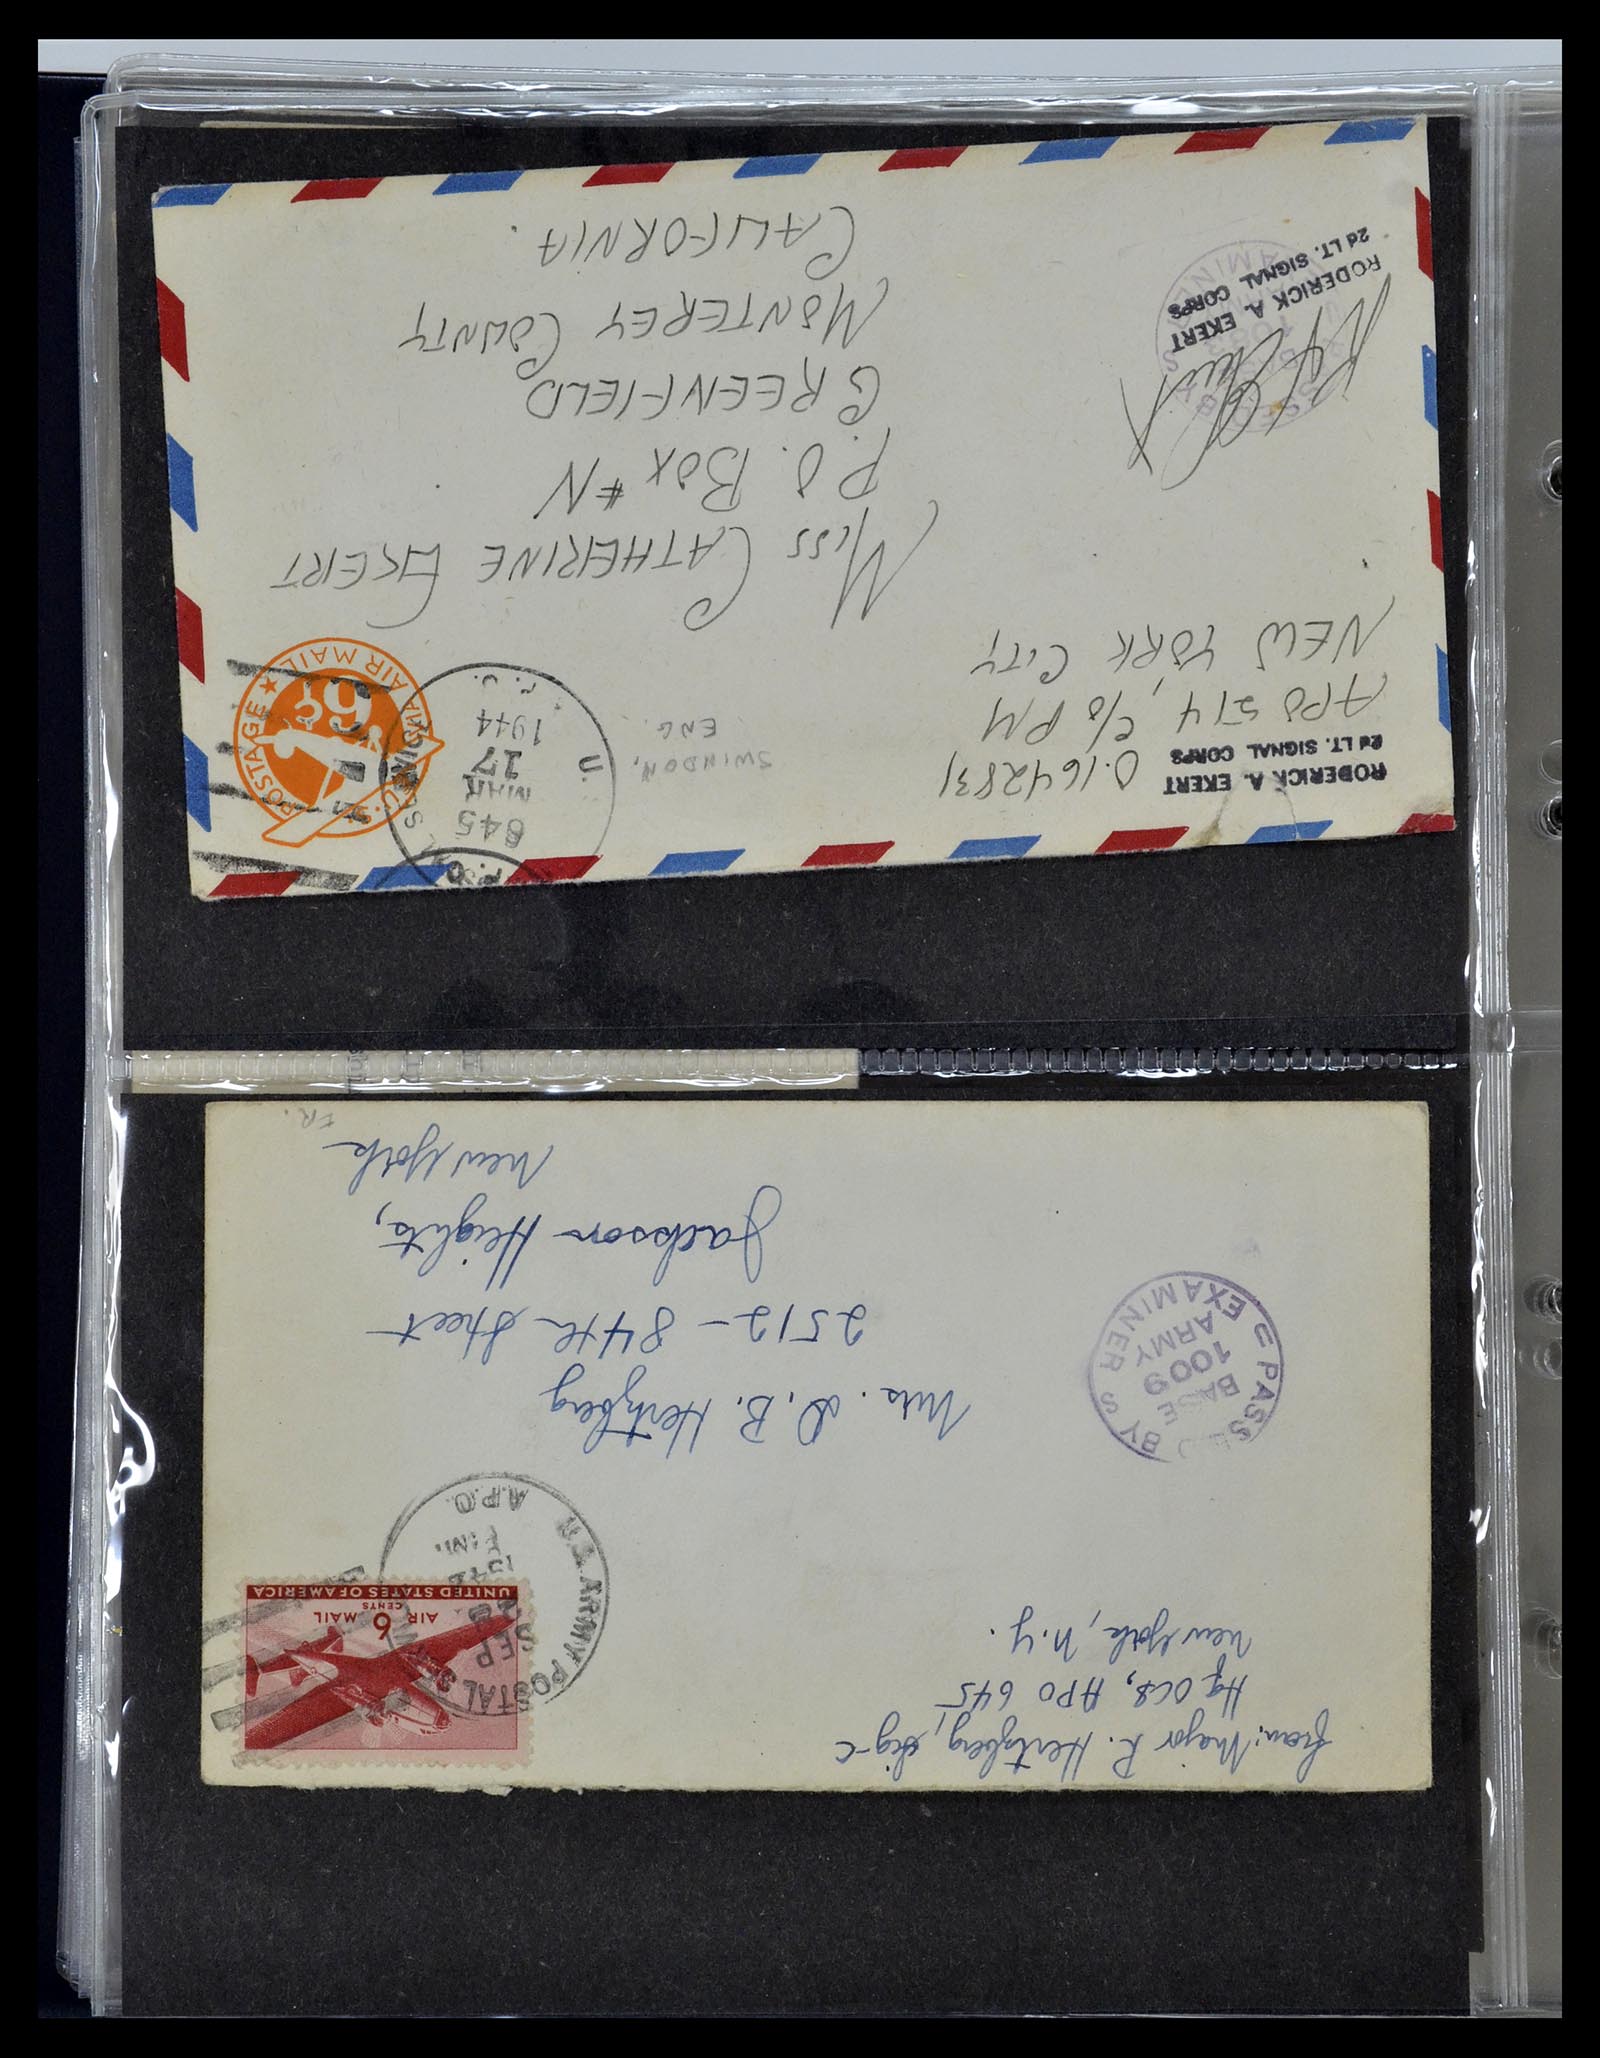 RODERICK A. EKERT O.1642831
2d LT. SIGNAL CORPS
APO 514, c/o PM
NEW YORK CITY
SWINDON,
ENG.
U.
P.O.
645
MAR
17
1944
U.S. POSTAGE
AIR MAIL
6¢
MISS CATHERINE EKERT
P.O. BOX #N
GREENFIELD
MONTEREY COUNTY
CALIFORNIA.
RODERICK A. EKERT
2d LT. SIGNAL CORPS
from: Major R. Hertzberg, Sig-C
Hq OCS, APO 645
New York, N.Y.
U.S. ARMY POSTAL
SEP
A.P.O.
AIR 6 MAIL
CENTS
UNITED STATES OF AMERICA
Mrs. D. B. Hertzberg
2512 - 84th Street
Jackson Heights,
New York
FR.
PASSED BY
BASE
1009
ARMY
EXAMINER